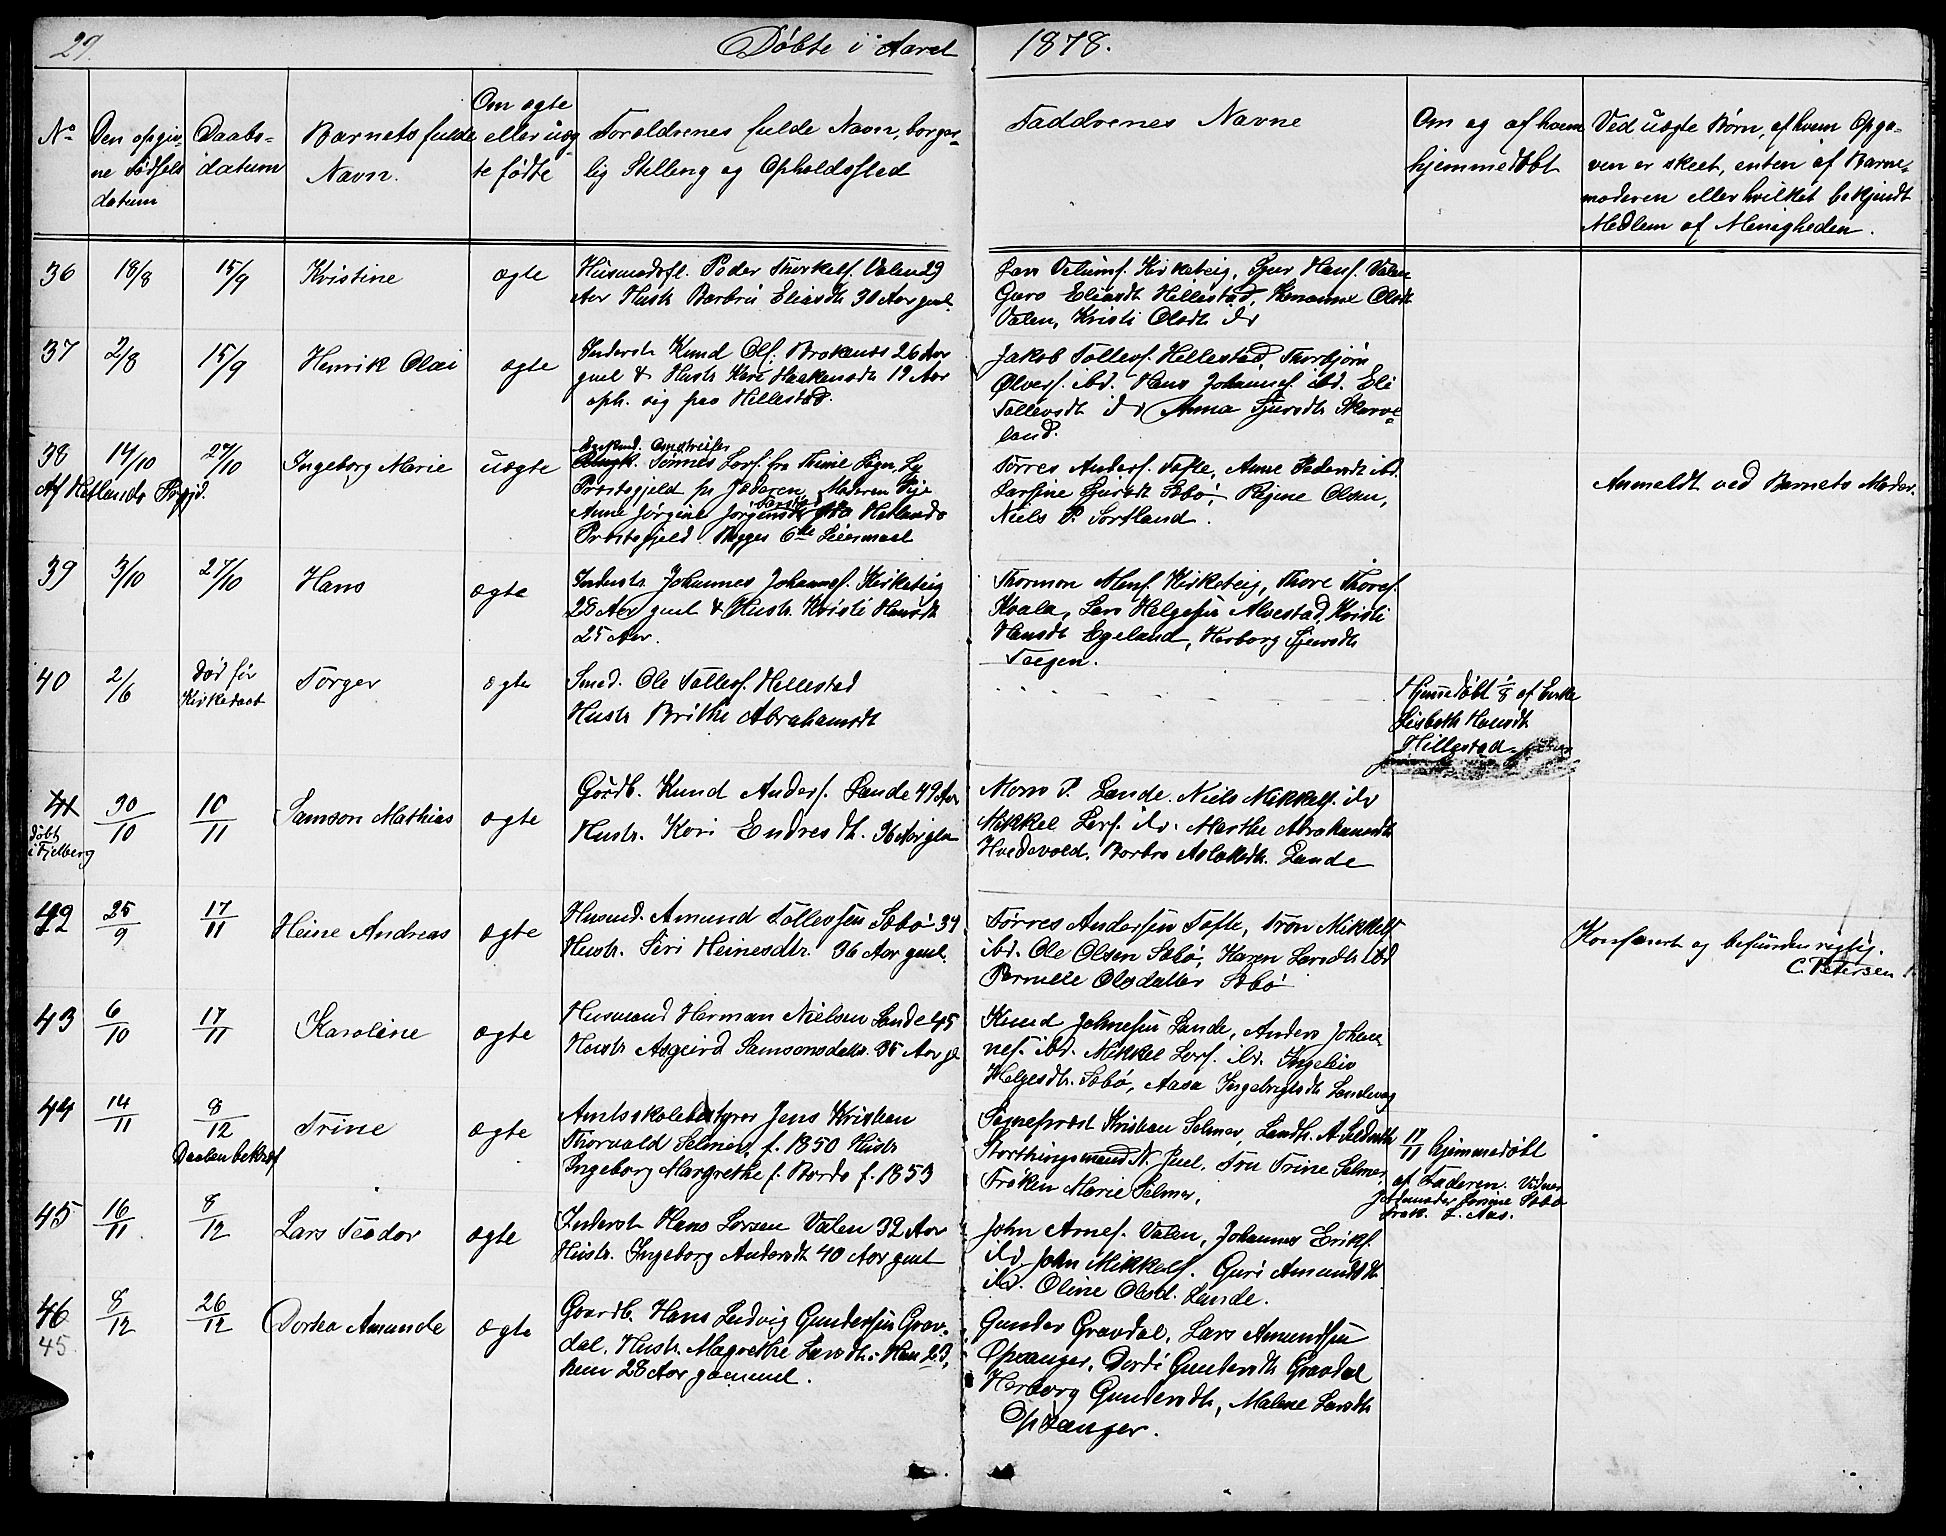 29.
Døbte i Aaret 1878.
No
Den opgiv-
ne Fødsels
datum
Daabs-
datum
Barnets fulde
Navn.
Om ægte
eller uæg-
te fødte
Forældrenes fulde Navn, borger-
lig Stilling og Opholdssted
Faddrenes Navne
Om og af hvem
hjemmedøbt
Ved uægte Børn, af hvem Opga-
ven er skeet, enten af Barne-
moderen eller hvilket bekjendt
Medlem af Menigheden.
36 18/8 15/9 Kristine ægte
Husmdsfl. Peder Thorkels. Valen 29
Aar Hustr Barbru Eliasdtr 30 Aar gml.
Kirketeig, Sjur Hans. Valen
Guro Eliasdt Hillestad, Olsdt
Valen, Kristi Olsdt ibd
37 2/8 15/9 Henrik Olai ægte
Inderst. Knud Ols. 26 Aar
gml & Hustr Kari Haakensdtr 19 Aar
oph. sig paa Hillestad.
Jakob Tollevs. Hillestad, Thorbjørn
Olvers. ibd. Hans Johannes. ibd. Eli
Tollevsdt ibd Anna Sjursdtr Skorve-
land.
38 14/10 27/10 Ingeborg Marie uægte
Af Hetlands Prgjd.
Omstreifer
Tønnes Lars. fra Thime Sogn, Ly
Præstegjeld pr Jæderen, Moderen Pige
Anne Jørgine Jørgensdtr fra Hetlands
Præstegjeld. Begges 6te Leiermaal
Tørres Anders. Tofte, Anne Pedersdt ibd.
Larsine Sjursdt Sæbø, Regine Olsen,
Niels P. Sortland.
Anmeldt ved Barnets Moder.
39 3/10 27/10 Hans ægte
Inderst. Johannes Johannes. Kirketeig
28 Aar gml & Hustr. Kristi Hansdt
25 Aar.
Thormon Kirketeig, Thore Thores.
Kvala, Lars Helgesen Alvestad, Kristi
Hansdt Egeland, Herborg Sjursdt
Teigen.
40 2/6 Død før
Kirkedaab Torger ægte
Smed. Ole Tollefs. Hillestad
Hustr Brithe Abrahamsdt
Hjemmedøbt 1/8 af Enke
Lisbeth Hansdt
Hillestad
41 30/10 10/11 Samson Mathias ægte
døbt
i Fjelberg
Gårdb. Knud Anders. Sande 49 Aar
Hustr. Kari Endresdt. 36 Aar glm
Mons P. Sande. Niels Mikkels. ibd
Mikkel Lars. ibd. Marthe Abrahamsdtr
Hvedevold. Barbro Aslaksdtr. Sande
42 25/9 17/11 Heine Andreas ægte
Husmd. Amund Tollevsen Sæbø 34
Hustr. Siri Heinesdtr. 36 Aar gml.
Tørres Andersen Tofte, Trøn Mikkels.
ibd. Ole Olsen Sæbø, Karen Larsdtr ibd
Pernille Olsdatter Sæbø
Konfereret og befunden rigtig.
C. Petersen
43 6/10 17/11 Karoline ægte
Husmand Herman Nielsen Sande 45
Hustr Asgerd Samsonsdatr. 35 Aar gl
Knud Johnesen Sande, Anders Johan-
nes. ibd. Mikkel Lars. ibd. Ingeleiv
Helgesdtr. Sæbø, Aasa Ingebrigtsdt Sandvag
44 14/11 8/12 Trine ægte
Daaben bekræf
Amtsskolebestyrer Jens Kristian
Thorvald Selmer, f. 1850 Hustr
Ingeborg Margrethe f. Borda f. 1853
Sognepræst Kristian Selmer, Landh. A.
Storthingsmand N. Juel, Fru Trine Selmer,
Frøken Marie Selmer,
17/11 hjemmedøbt
af Faderen. Vidner
Jordmoder Larsine Sæbø
Frøk. L. Aas.
45 16/11 8/12 Lars Teodor ægte
Inderst. Hans Larsen Valen 32 Aar
Hustr. Ingeborg Andersdt 40 Aar gml
John Arnes. Valen, Johannes Eriks.
ibd John Mikkels. Guri Amundsdt
ibd. Oline Olsd. Sande.
46 8/12 26/12 Dortea Amunde ægte
45.
Gaardb. Hans Ludvig Gundersen Grav-
dal. Hustr. Magrethe Larsdtr. Han 23,
hun 28 Aar gammel.
Gunder Gravdal, Lars Amundsen
Opsanger, Dordi Gundersdt Gravdal
Herborg Gundersdt, Malene Larsdtr
Opsanger.